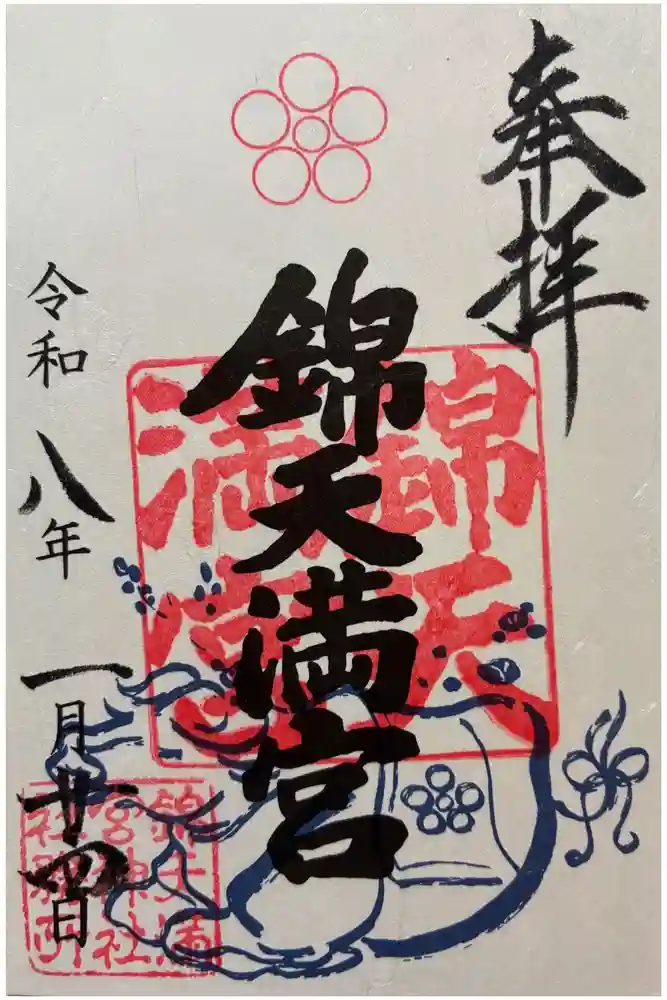 奉拝
錦天満宮
錦天満宮
令和八年一月廿四日
錦天満宮神社社務所